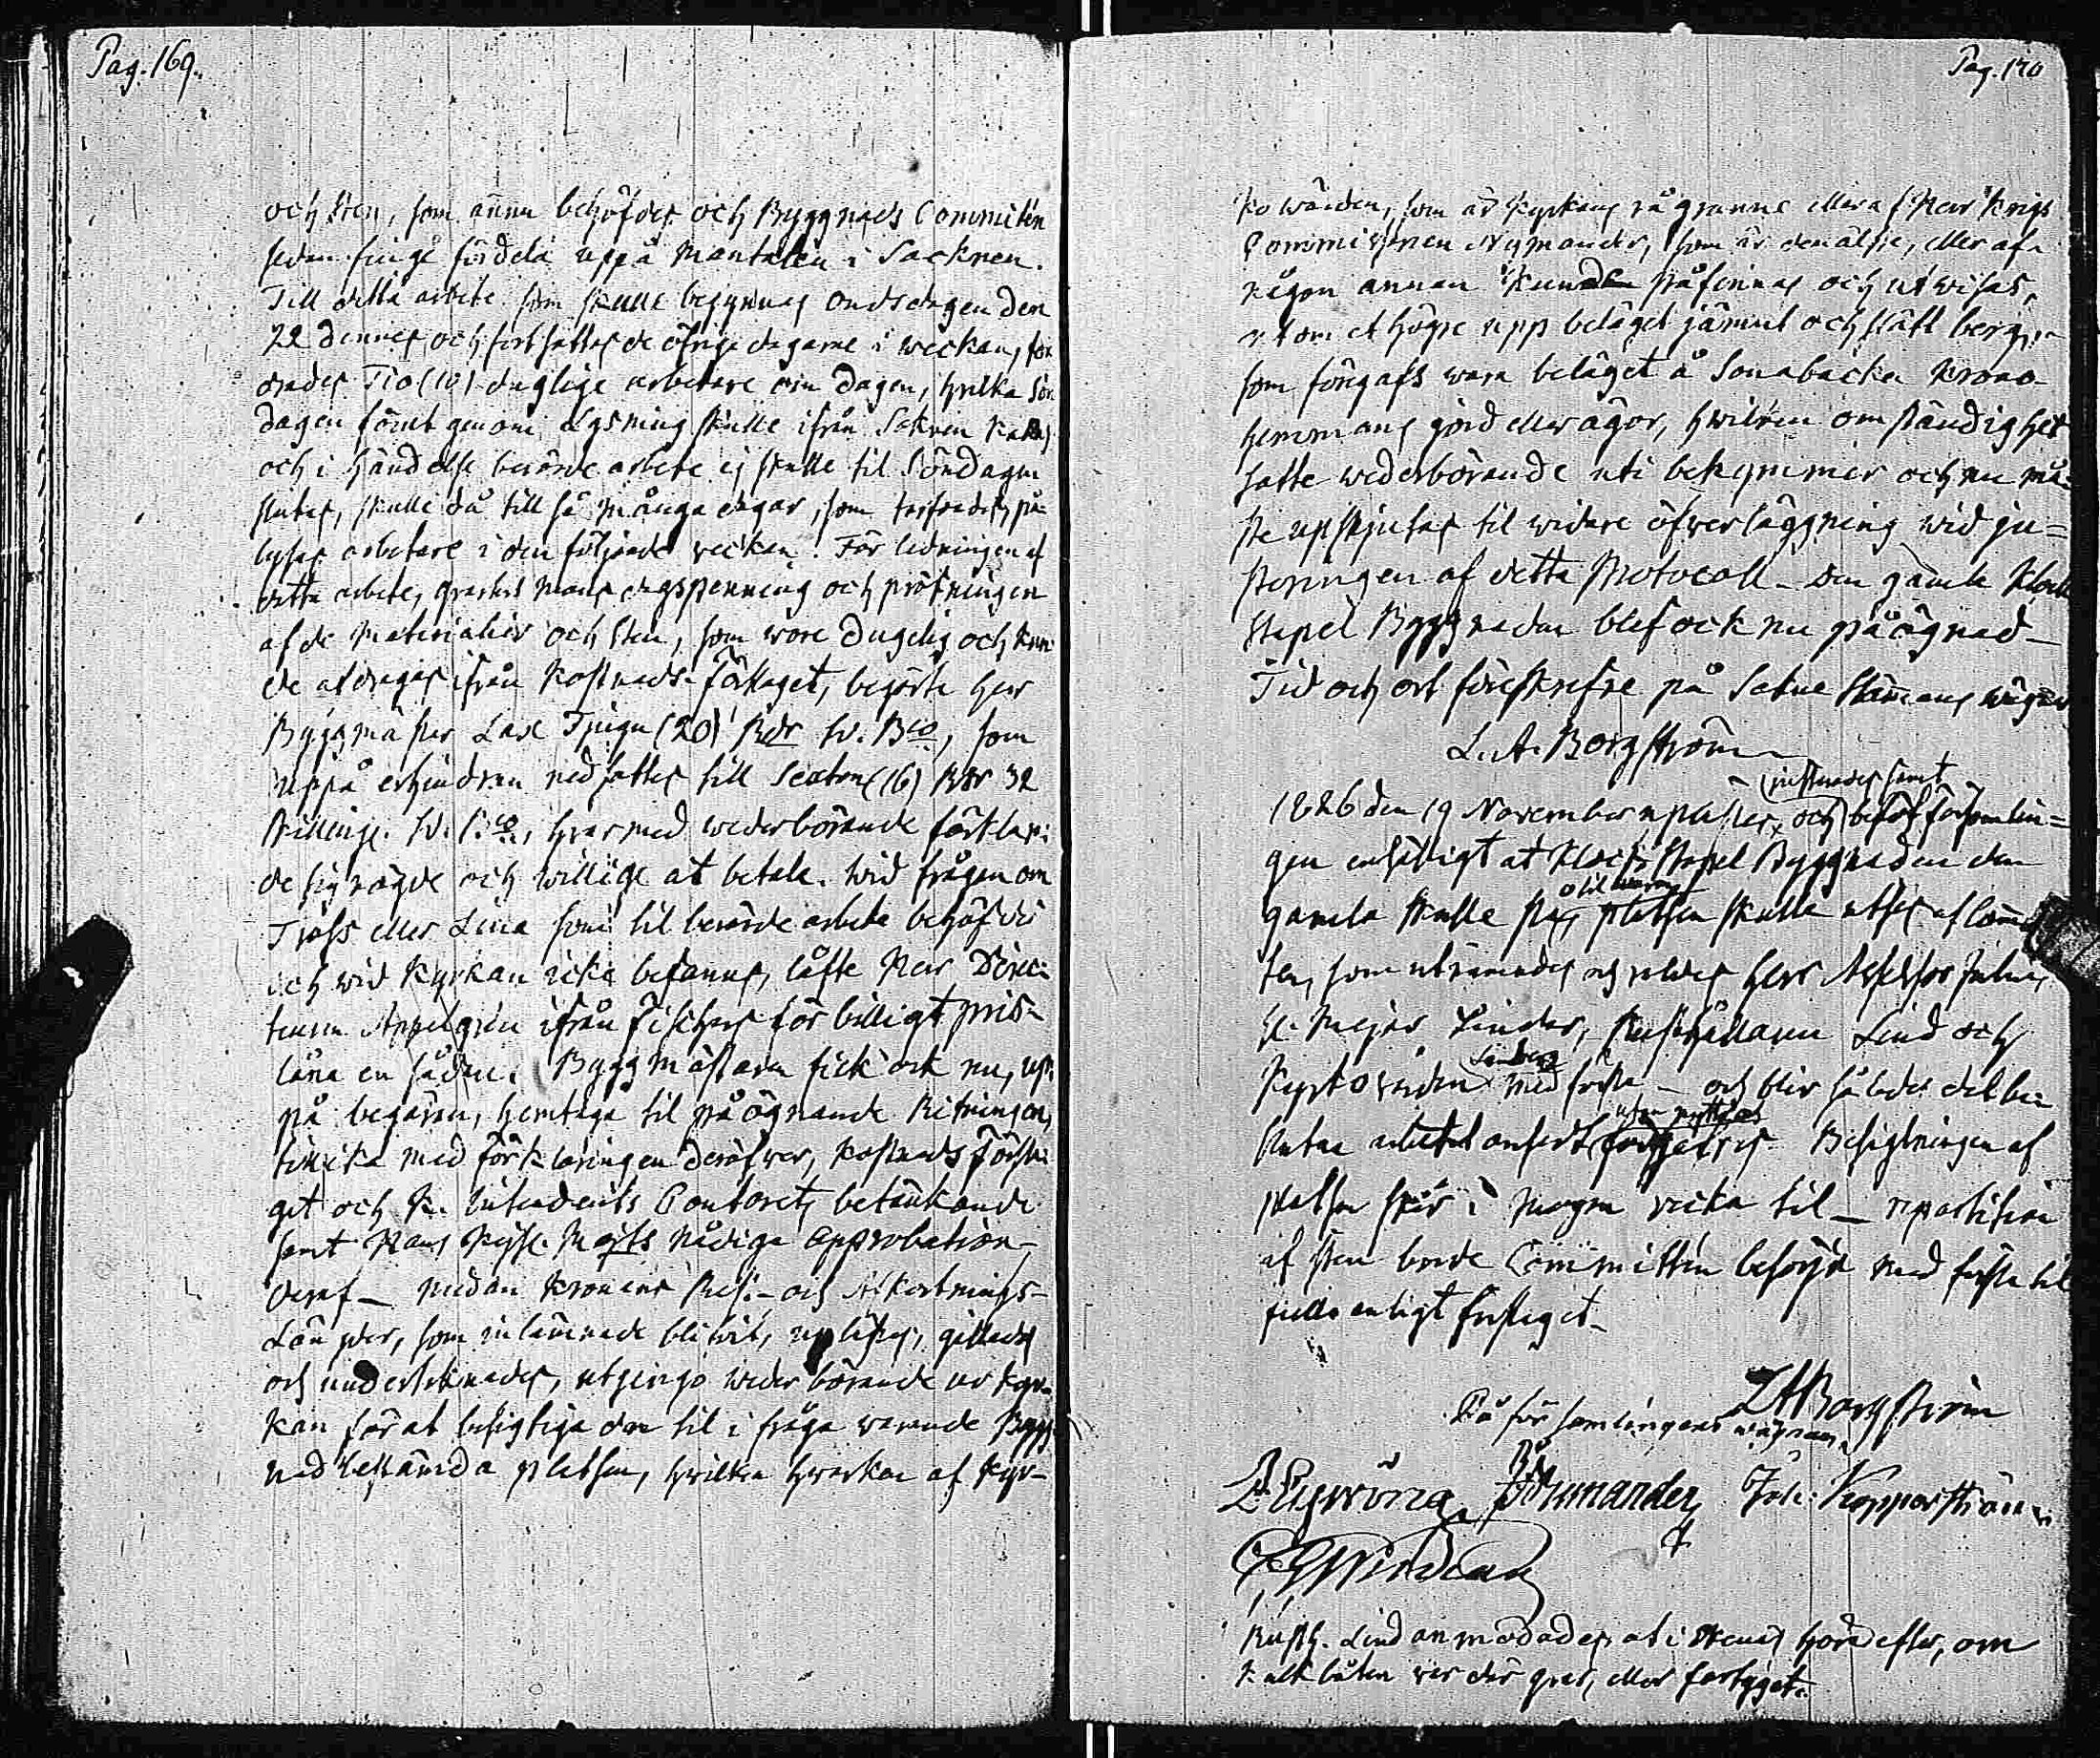 Pag. 169.
och Sten, som ännu behöfdes och Byggnads Committén
sedan finge fördela uppå Mantalen i Socknen.
Till detta arbete som skulle begynnas onsdagen den
22 dennes och fortsättas de öfrige dagarne i weckan, for
drades Tio (10) duglige arbetare om Dagen, hvilka Sön
dagen förut genom Lysning skulle ifrån Soknen kallas
och i händelse berörde arbete ej skulle til Söndagen
slutas, skulle då till så många dagar, som erfordras, på
lysas arbetare i den följande veckan. För ledningen af
detta arbete, graders Mans dagspenning och pröfningen
af de Materialier och Sten, som wore dugelig och kun
de afdragas ifrån Kostnads-Förslaget, begärte Herr
Byggmästar Lax Tjugu (20) Rdr Sv. Bco, som
uppå erhindran nedsattes till Sexton (16) Rdr 32
skilling. Sv. Bco, hvarmed wederbörande förklara:
de sig nögde och willige at betala. Wid frågen om
Tross eller Lina som til berörde arbete behöfdes
och wid Kyrkan icke befanns, låfte Herr Direc:
teuren Appelgrén ifrån Fiskars för billigt pris
låna en sådan. Byggmästaren fick ock nu, up:
på begäran, hemtaga til påögnande Ritningen,
tillika med förklaringen deröfver, Kostnads Försla:
get och K. Intendents Contorets betänkande
samt Hans Kejs. Majts Nådiga Approbation
deraf — medan Kronans Rest- och Afkortnings-
Längder, som inlämnade blivit, uplästes, gillades
och undertecknades, utgingo wederbörande ur Kyr
kan för at besigtiga den til i fråga warande Bygg
nad bestämda platsen, hwilken hwarken af Kyr-
Pag. 170
ko wärden, som är Kyrkans rågranne eller af Herr Krigs
Commissarien Nymander, som är den älste, eller af
någon annan kunde påfinnas och utwisas,
utom et högre upp beläget jämnt och slätt berg,
som föregafs wara beläget å Sonabacka Krono
hemmans jord eller ägor, hwilken omständighet
satte wederbörande uti bekymmer och nu må-
ste upskjutas til widare öfverläggning wid ju=
steringen af detta Protocoll. Den gamla Klock
stapel Byggnaden blef ock nu påögnad —
Tid och ort föreskrefne på Sokne Stämmans wägnar
L. A. Borgström
justerades samt
1826 den 19 November uplästes, och beslöt församlin=
gen enhälligt at Klockstapel Byggnaden den
gamla skulle stå, platsen skulle utses af Commit
ten, som utnämndes och valdes Herr Assessor
H. Major Linder, Rusthållaren Lind och
Kyrkovärden Lindberg med första — och blir således det be
slutne arbetet onsdags Besigtningen af
platsen sker i Morgon vecka til — repartition
af Sten borde Committén besörja med första til
fälle enligt förslaget —
L A Borgström
På församlingens wägnar
Nymander Joh: Kopparström
Rusth. Lind anmodades at i höra efter, om
Kalkbåten war der qvar, eller fortyget.